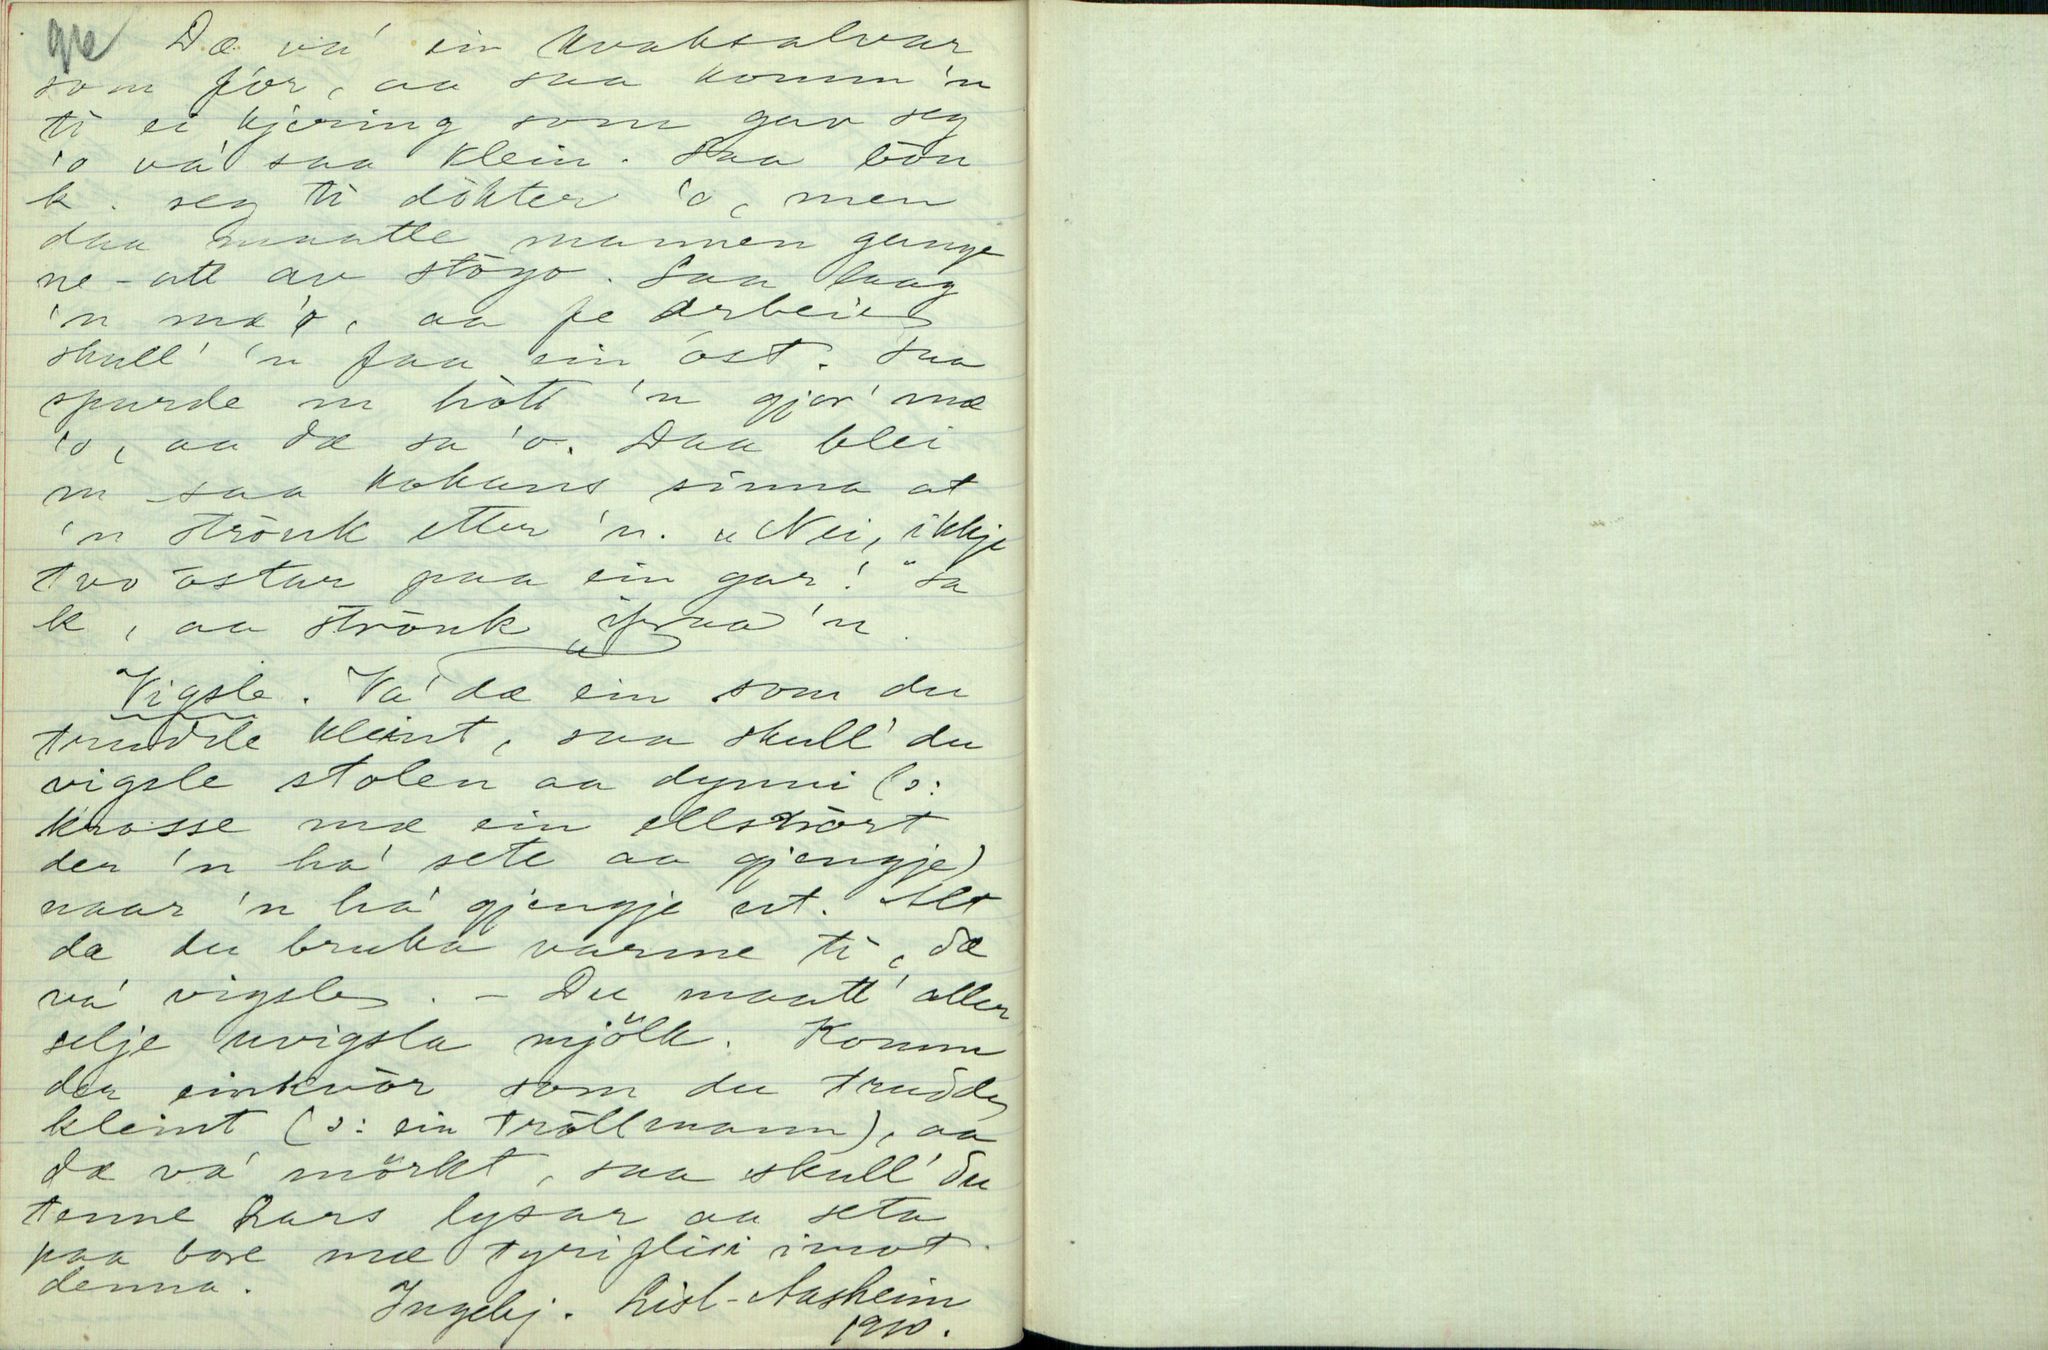 Dæ va' ein kvaksalvar
som för, aa saa komm 'n
ti ei kjering som gav seg
'o va' saa klein. Saa bön
k. seg ti dökter 'o, men
daa maatte mannen gange
ne-att av stögo. Saa laag
'n mæ 'o, aa fe arbeie
skull' 'n faa ein ost. Saa
spurde m hòtt 'n gjor' mæ
'o, aa dæ sa 'o. Daa blei
m saa kokans sinna at
'n strönk etter 'n. „Nei, ikkje
tvo ostar paa ein gar!" sa
k, aa strönk ifraa 'n.
Vigsle. Va' dæ ein som du
trudde kleint, saa skull' du
vigsle stolen aa dynni (ɔ:
krosse mæ ein ellskòrt
der 'n ha' sete aa gjengje)
naar 'n ha' gjengje ut. Alt
da du bruka varme ti, dæ
va' vigsle. - Du maatt' aller
selje uvigsla mjölk. Komm
der einkvòr som du trudde
kleint (ɔ: ein tröllmann), aa
dæ va' mörkt, saa skull' du
tenne kars lysar aa seta
paa bore mæ tyriflisi imot
denna.
Ingebj. Lisl-Aasheim
1910.